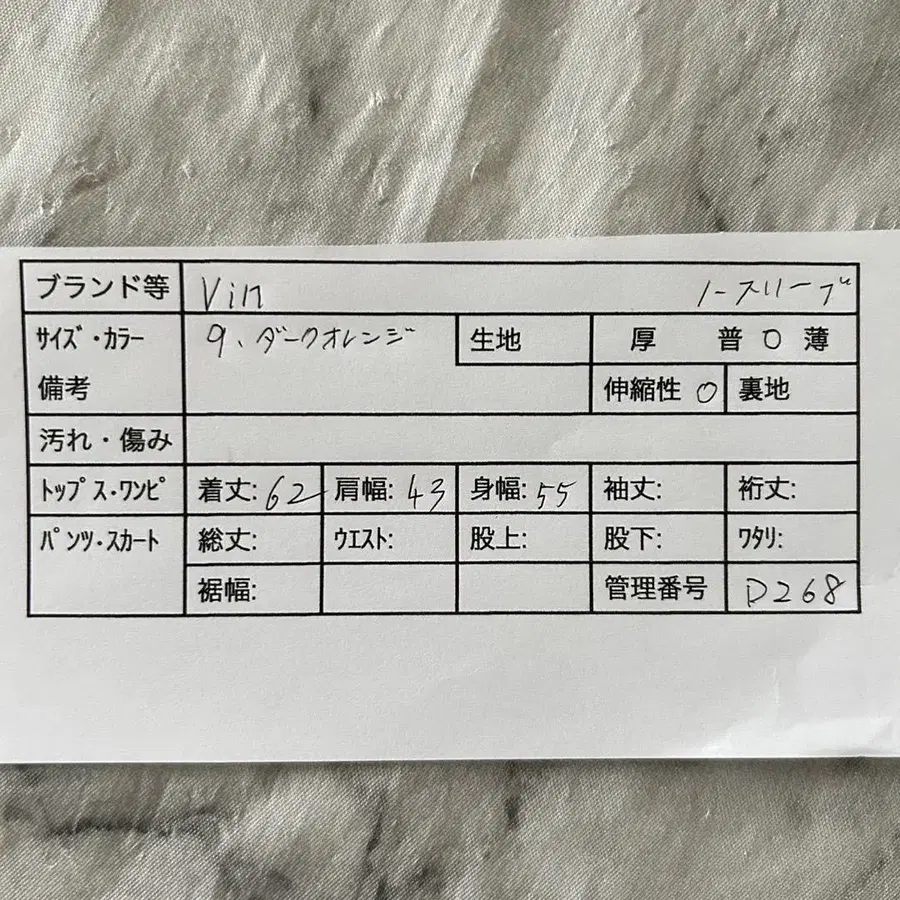 ブランド等 Vin ノースリーブ
サイズ・カラー 9、ダークオレンジ 生地 厚 普 ○ 薄
備考 伸縮性 ○ 裏地
汚れ・傷み
トップス・ワンピ 着丈: 62 肩幅: 43 身幅: 55 袖丈: 裄丈:
パンツ・スカート 総丈: ウエスト: 股上: 股下: ワタリ:
裾幅: 管理番号 D268